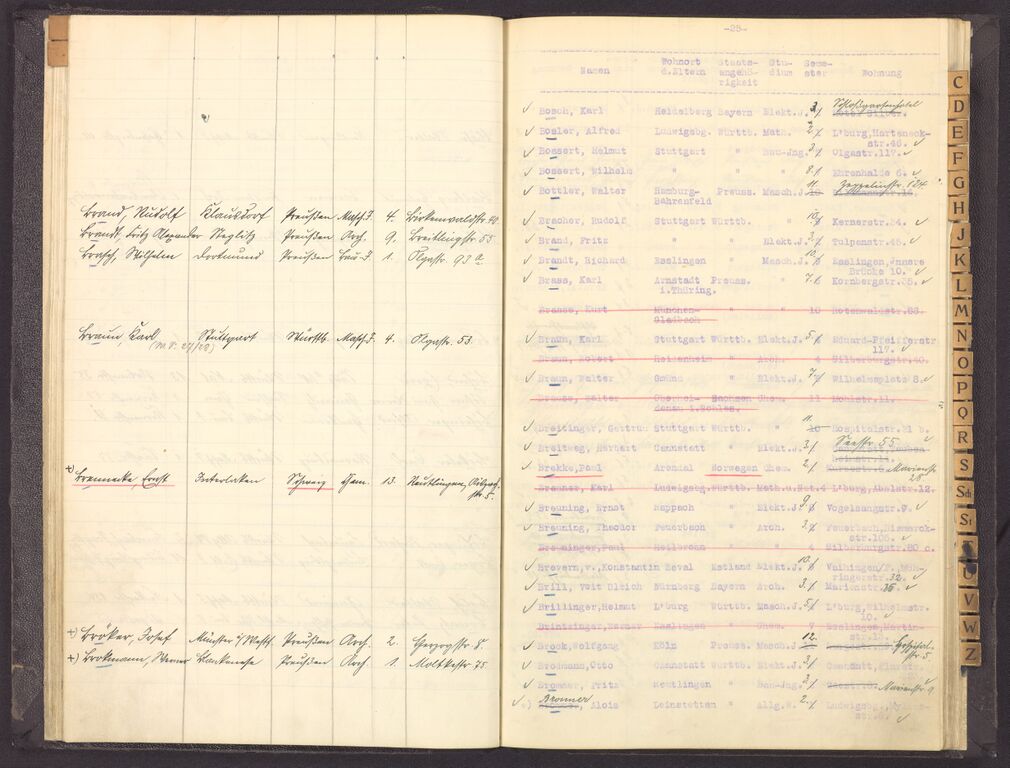 Brand, Rudolf Klausdorf Preußen Masch.J. 4. Birkenwaldstr. 40
Brandt, Fritz Alexander Steglitz Preußen Arch. 9. Breitlingstr. 55
Brasch, Wilhelm Dortmund Preußen Bau-J. 1. Olgastr. 93 a
Braun, Karl Stuttgart Württb. Masch.J. 4. Olgastr. 53.
Ernst Interlaken Schweiz Chem. 13. Reutlingen,
str. 5.
+) Bröker, Josef Münster i/Westf. Preußen Arch. 2. Herzogstr. 8.
+) Brokmann, Werner Blankenese Preußen Arch. 1. Moltkestr. 75
-25-
Namen Wohnort d.Eltern Staats-angehö-rigkeit Stu-dium Seme-ster Wohnung
Bosch, Karl Heidelberg Bayern Elekt.J. 3 Schloßgartenhotel
Bosler, Alfred Ludwigsbg. Württb. Math. L'burg, Marteneck-
str.46.
Bossert, Helmut Stuttgart " Bau-Jng. Olgastr.117.
Bossert, Wilhelm " " " 8 Ehrenhalde 6.
Bottler, Walter Hamburg- Preuss. Masch.J. 11 Zeppelinstr. 124
Bahrenfeld
Bracher, Rudolf Stuttgart Württb. " 10 Kernerstr.34.
Brand, Fritz " " Elekt.J. Tulpenstr.45.
Brandt, Richard Esslingen " Masch.J. 10 Esslingen,Innere
Brücke 10.
Brass, Karl Arnstadt Preuss. " 7 Kornbergstr.35.
i.Thüring.
Brasse, Kurt München- " " 10 Rotenwaldstr.83.
Gladbach
Braun, Karl Stuttgart Württb. Elekt.J. 5 Eduard-Pfeifferstr
117.
Braun, Robert Heidenheim " Arch. 4 Silberburgstr.40.
Braun, Walter Gmünd " Elekt.J. 7 Wilhelmsplatz 8.
Walter Sachsen Chem. 11 Mohlstr.11.
Breitinger, Gertrud Stuttgart Württb. " 11 Hospitalstr.21 b.
Breitweg, Herbert Cannstatt " Elekt.J. 3 Seestr. 55
Brekke, Paul Arendal Norwegen Chem. 2 Marienstr.
28.
Breuner, Karl Ludwigsbg. Württb. Math.u.Nat. 4 L'burg, Abelstr.12.
Breuning, Ernst Mappach " Elekt.J. 9 Vogelsangstr.9.
Breuning, Theodor Feuerbach " Arch. 3 Feuerbach,Bismarck-
str.106.
Breuninger,Paul Heilbronn " " 4 Silberburgstr.80 c.
Brevern,v.,Konstantin Reval Estland Elekt.J. 10 Vaihingen/F.,Böb-
ringerstr.32.
Brill, Veit Dieich Nürnberg Bayern Arch. 3 Marienstr.36
Brillinger,Helmut L'burg Württb. Masch.J. 5 L'burg,Wilhelmstr.
10.
Brintzinger,Werner Esslingen " Chem. 9 Esslingen,Martin-
Brock,Wolfgang Köln Preuss. Masch.J. 12. Hospital-
str. 5.
Brodmann,Otto Cannstatt Württb. Elekt.J. 3
Brommer, Fritz Reutlingen " Bau-Jng. Marienstr. 9
Bronner
+) Alois Leinstetten " Allg.W. 2 Ludwigsbg.,
C
D
E
F
G
H
J
K
L
M
N
O
P
Q
R
S
Sch
St
U
V
W
Z